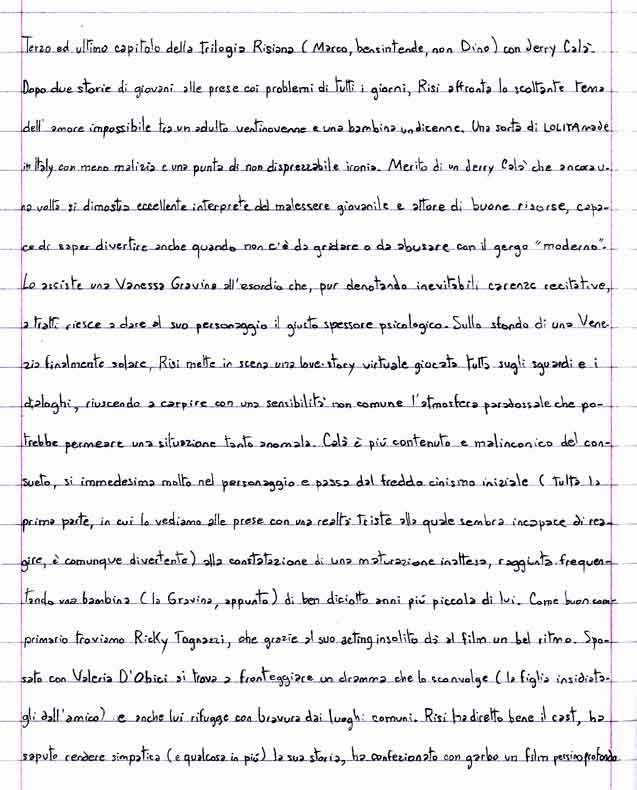 Terzo ed ultimo capitolo della trilogia Risiana (Marco, bensintende, non Dino) con Jerry Calà.
Dopo due storie di giovani alle prese coi problemi di tutti i giorni, Risi affronta lo scottante tema
dell'amore impossibile tra un adulto ventinovenne e una bambina undicenne. Una sorta di LOLITA made
in Italy con meno malizia e una punta di non disprezzabile ironia. Merito di un Jerry Calà che ancora u-
na volta si dimostra eccellente interprete del malessere giovanile e attore di buone risorse, capa-
ce di saper divertire anche quando non c'è da gridare o da abusare con il gergo "moderno".
Lo assiste una Vanessa Gravina all'esordio che, pur denotando inevitabili carenze recitative,
a tratti riesce a dare al suo personaggio il giusto spessore psicologico. Sullo sfondo di una Vene-
zia finalmente solare, Risi mette in scena una love-story virtuale giocata tutta sugli sguardi e i
dialoghi, riuscendo a carpire con una sensibilità non comune l'atmosfera paradossale che po-
trebbe permeare una situazione tanto anomala. Calà è più contenuto e malinconico del con-
sueto, si immedesima molto nel personaggio e passa dal freddo cinismo iniziale (tutta la
prima parte, in cui lo vediamo alle prese con una realtà triste alla quale sembra incapace di rea-
gire, è comunque divertente) alla constatazione di una maturazione inattesa, raggiunta frequen-
tando una bambina (la Gravina, appunto) di ben diciotto anni più piccola di lui. Come buon com-
primario troviamo Ricky Tognazzi, che grazie al suo acting insolito dà al film un bel ritmo. Spo-
sato con Valeria D'Obici si trova a fronteggiare un dramma che lo sconvolge (la figlia insidiata-
gli dall'amico) e anche lui rifugge con bravura dai luoghi comuni. Risi ha diretto bene il cast, ha
saputo rendere simpatica (e qualcosa in più) la sua storia, ha confezionato con garbo un film persino profondo.